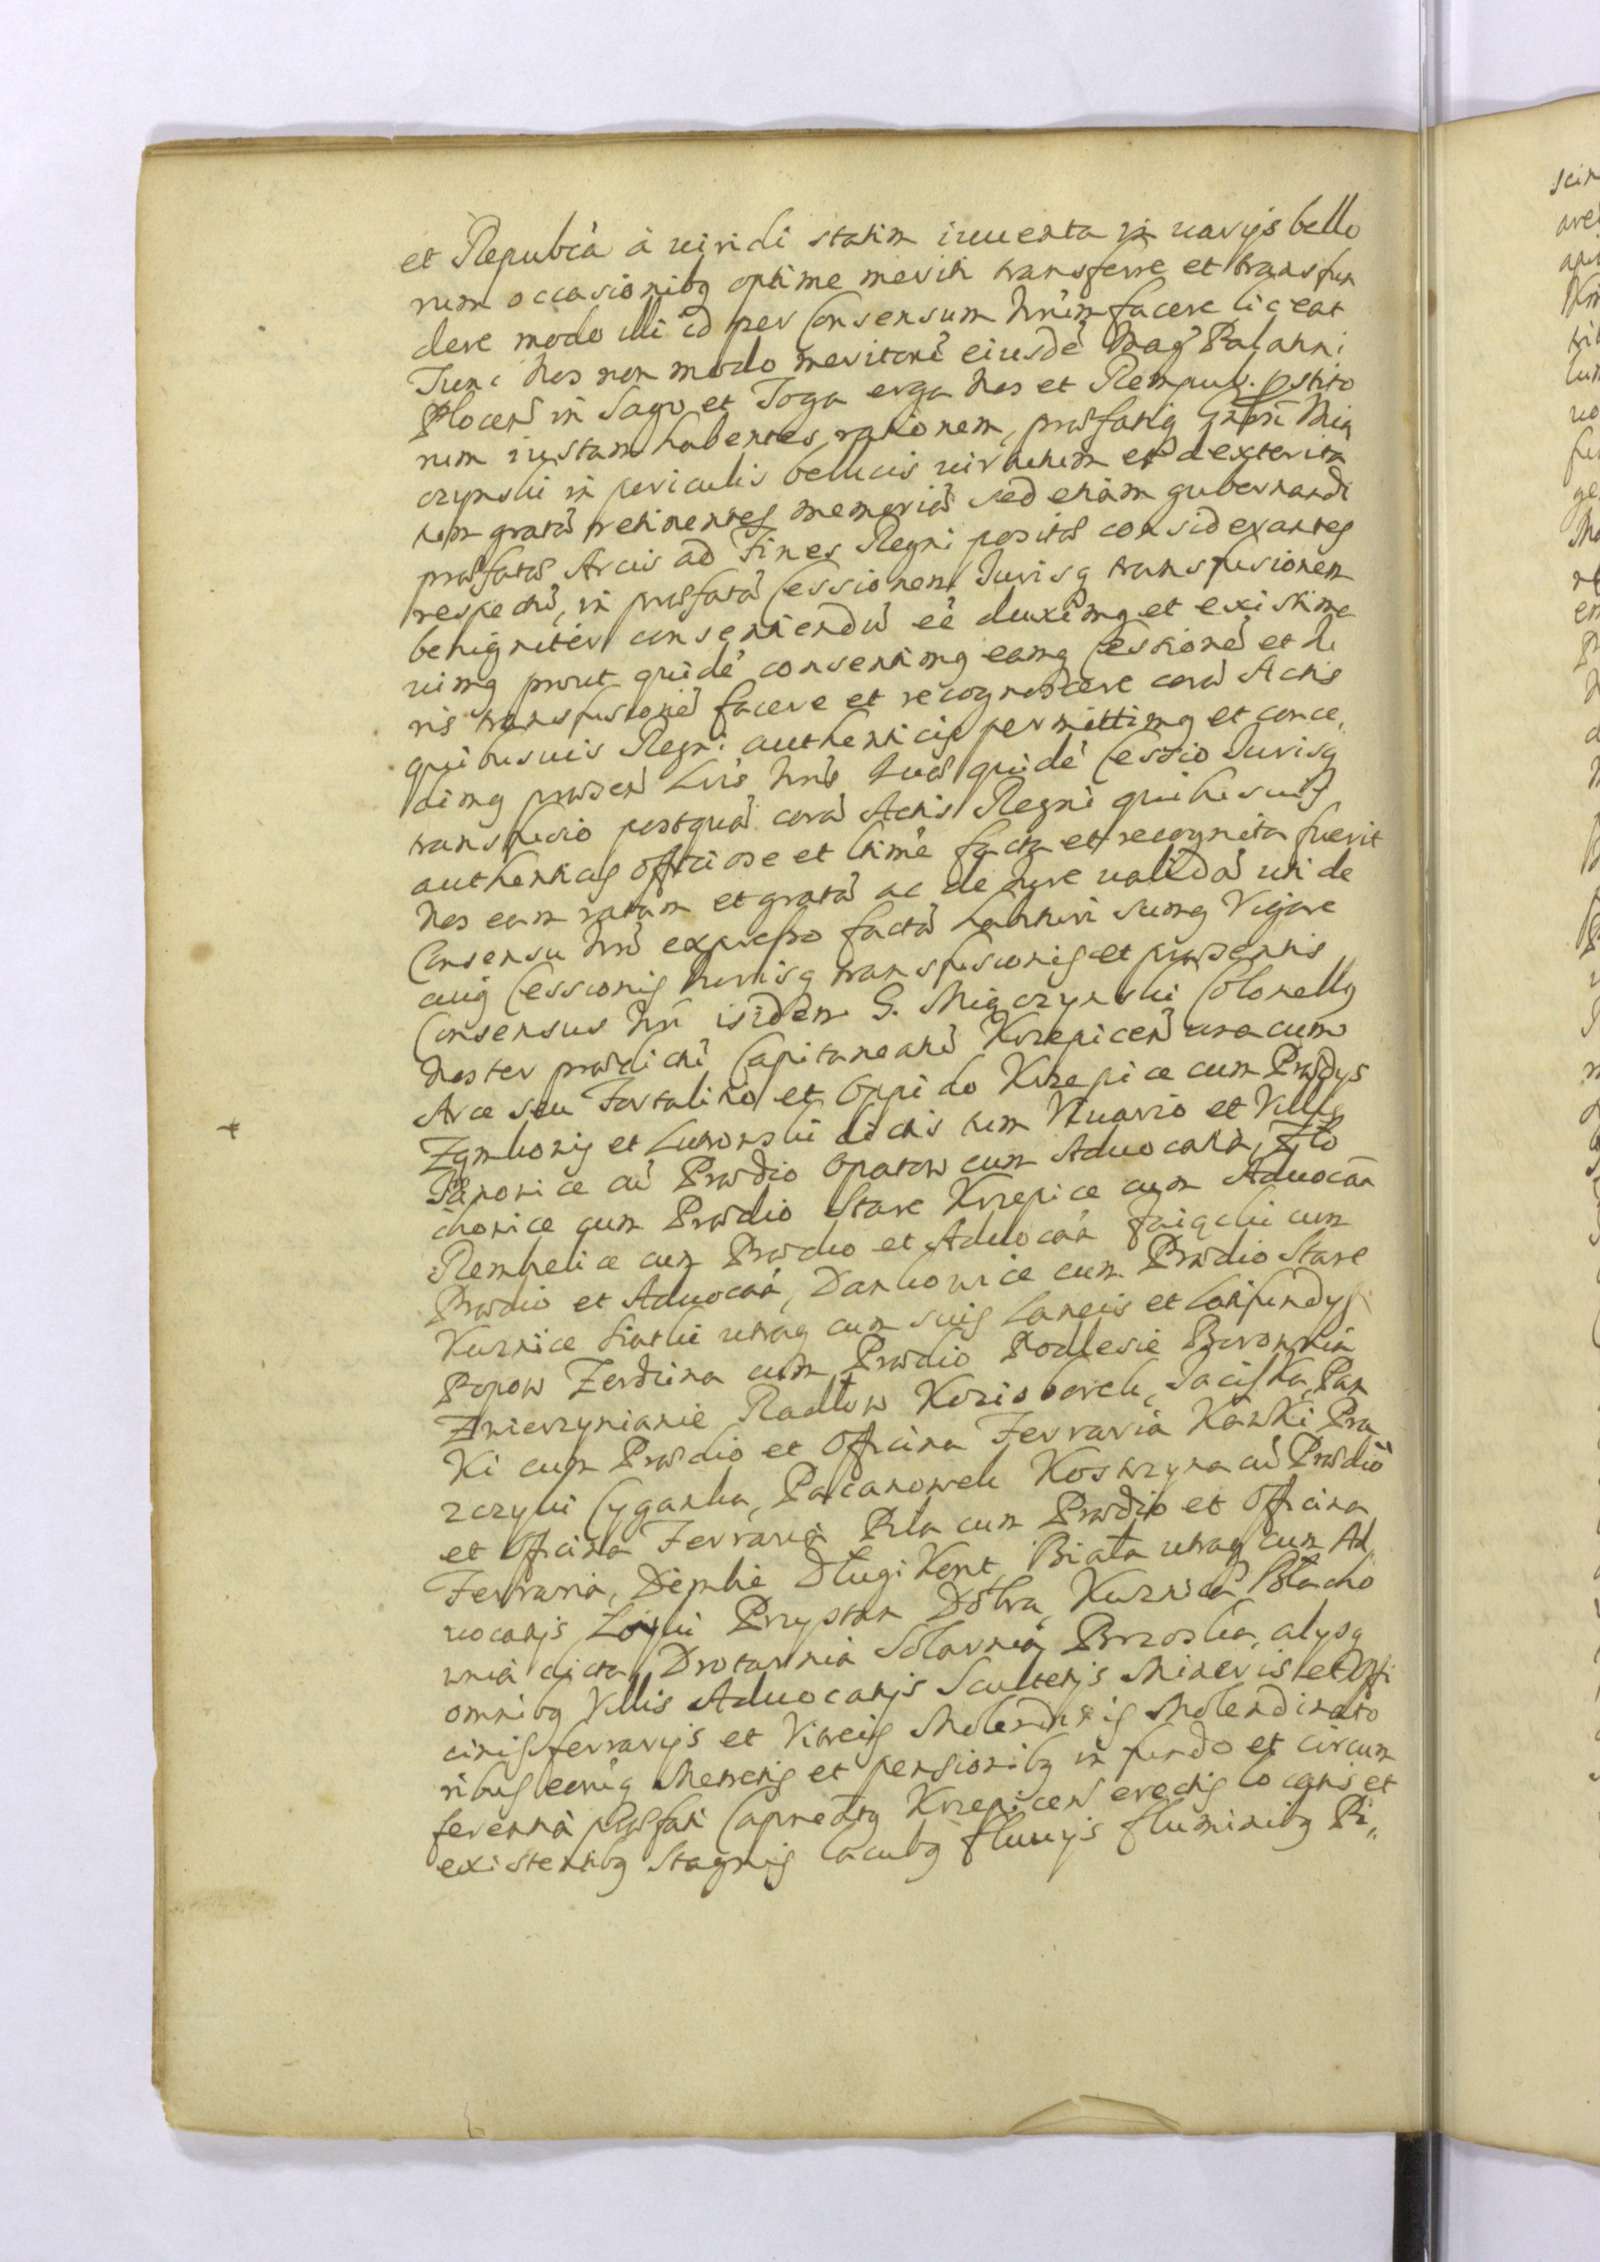 et Republcà à uiridi statim iuuenta in uarijs bello
rum occasionibq optime meriti transferre et transfun
dere modo illi id per Consensum Nrũm facere liceat
Tunc Nos non modo meritorũ eiusdẽ Mag Palatini
Plocen in Sago et Toga erga Nos et Rempub. pstito
rum iustam habentes rationem, præfatiq Gnosi Mią
czynski in periculis bellicis uirtutem et dexterita
tem gratã retinentes memoriã sed etiam gubernandi
præfatã Arcis ad Fines Regni positã considerantes
respectũ, in præfatã Cessionem Jurisq transfusionem
benigniter consentiendũ eẽ duximq et existima
uimq prout quidẽ consentimq eamq Cessionẽ et Ju
ris transfusionẽ facere et recognoscere corã Actis
quibusuis Regni authenticis permittimq et conce,
dimq præsen Lris Nris Quæ quidẽ Cessio Jurisq
transfusio postquã corã Actis Regni quibusuis
authenticis officiose et ltimẽ facta et recognita fuerit
Nos eam ratam et gratã ac de Jure ualidã uti de
Consensu Nrõ expresso factã habituri sumq Vigore
cuiq Cessionis Jurisq transfusionis et præsentis
Consensus Nri isidem G. Miączynski Colonellq
Noster prædictũ Capitaneatũ Krzepicen una cum
Arce seu Fortalitio et Oppido Krzepice cum Prædijs
Zymkonis et Lutonski dictis tum Vluario et Villis
Panonice cũ Prædio Opatow cum Aduocatia, Zło
chonice cum Prædio Stare Krzepice cum Aduocãa
Rembelice cum Prædio et Aduocãa Zaiączki cum
Prædio et Aduocãa, Dankowice cum Prædio Stare
Kuznice Siatki utraq cum suis Laneis et Latifundijs
Popow Zerdzina cum Prædio Podlesie Boronnia
Zwierzynianie Radłow Kozioborek, Jaciska, Pan
Ki cum Prædio et Officina Ferraria Kawki Pra
szczyki Cyganka, Pacanowek Kostrzyna cũ Prædiõ
et Officina Ferraria Piła cum Prædio et Officina
Ferraria, Dembie Długi Kont, Biała utraq cum Ad
uocatijs Łoyki Przystan Dobra, Kuznica Błacho
wnia dicta, Drotarnia Solarnia, Brzoska, alijsq
omnibq Villis Aduocatijs Scultetijs Mineris et Offi
cinis ferrarijs et Vitreis Molendinis Molendinato
ribus eorũq Mensuris et pensionibq in fundo et circum
ferentia præfati Capneatq Krzepicen erectis locatis et
existentibq Stagnis lacubq fluuijs fluminibq Pi,,